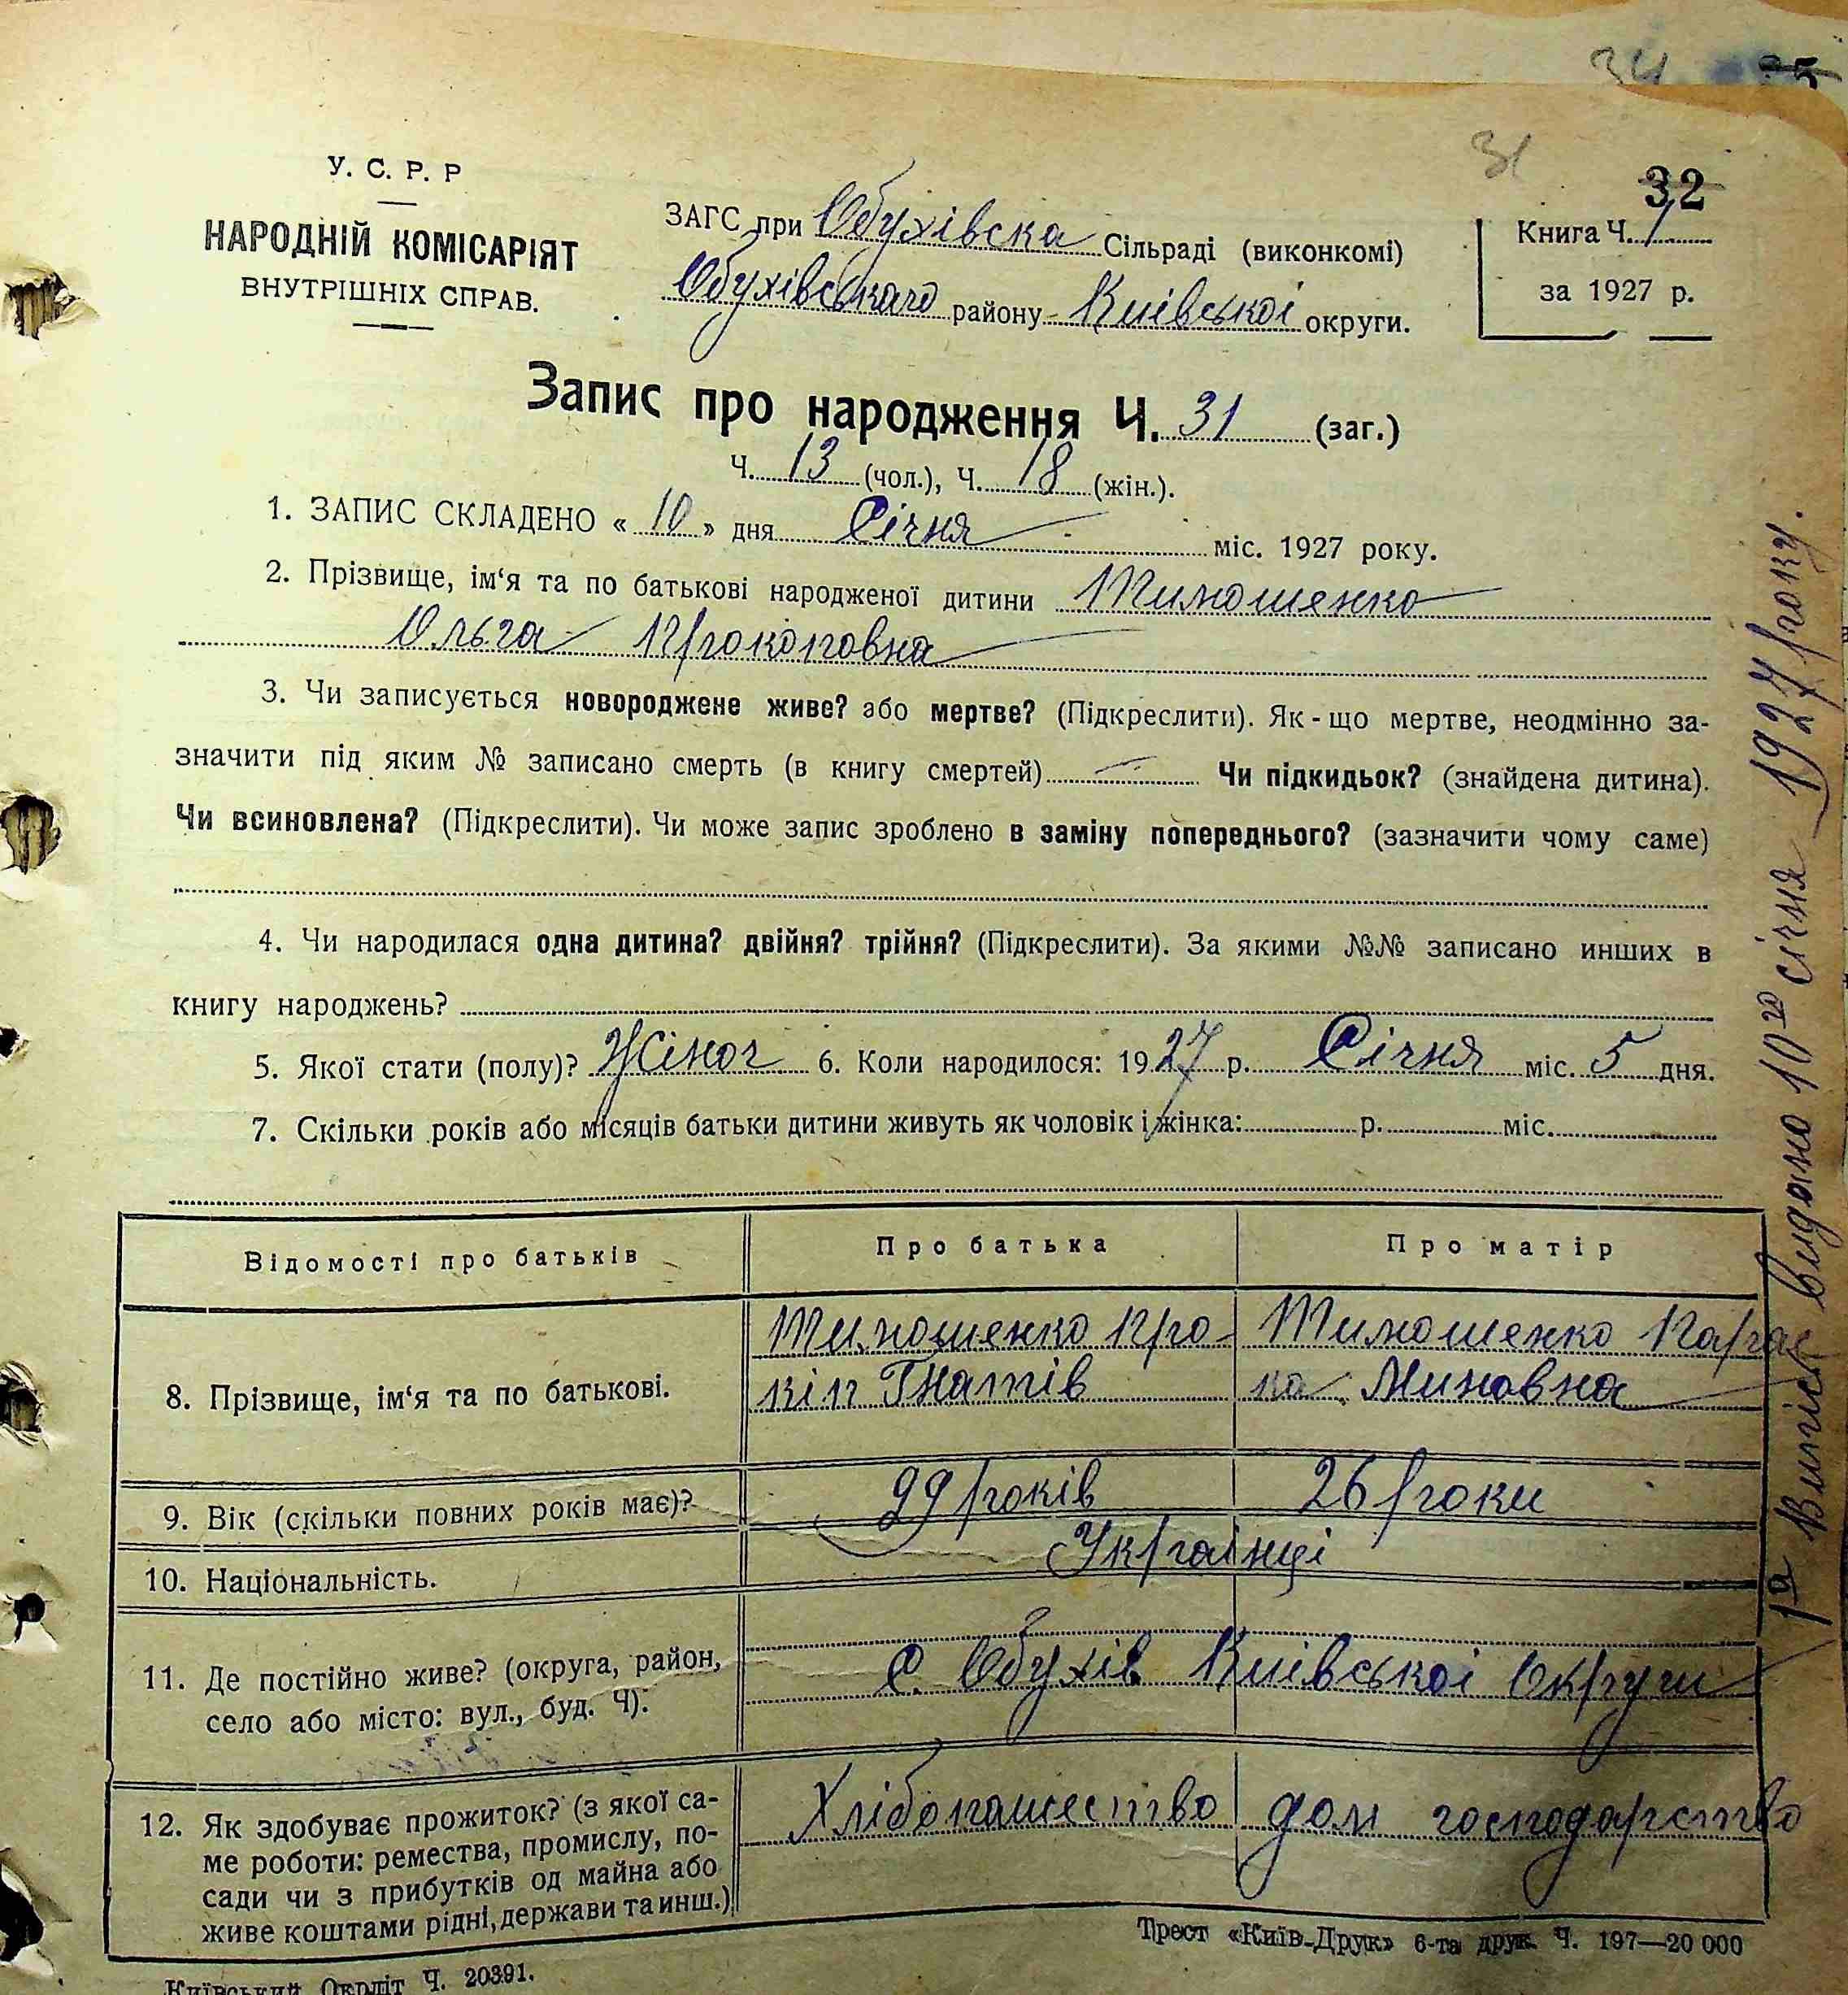 34 5
31
32
У. С. Р. Р
НАРОДНІЙ КОМІСАРІЯТ
ВНУТРІШНІХ СПРАВ.
ЗАГС при Обухівска Сільраді (виконкомі)
Обухівського району Київської округи.
Книга Ч. 1
за 1927 р.
Запис про народження Ч. 31 (заг.)
Ч. 13 (чол.), Ч. 18 (жін.).
1. ЗАПИС СКЛАДЕНО « 10 » дня Січня міс. 1927 року.
2. Прізвище, ім‘я та по батькові народженої дитини Тимошенко
Ольга Прокоповна
3. Чи записується новороджене живе? або мертве? (Підкреслити). Як-що мертве, неодмінно за-
значити під яким № записано смерть (в книгу смертей) — Чи підкидьок? (знайдена дитина).
Чи всиновлена? (Підкреслити). Чи може запис зроблено в заміну попереднього? (зазначити чому саме)
4. Чи народилася одна дитина? двійня? трійня? (Підкреслити). За якими №№ записано инших в
книгу народжень?
5. Якої стати (полу)? Жіноч 6. Коли народилося: 1927 р. Січня міс. 5 дня.
7. Скільки років або місяців батьки дитини живуть як чоловік і жінка: р. міс.
Відомості про батьків Про батька Про матір
8. Прізвище, ім‘я та по батькові. Тимошенко Про- Тимошенко Парас
кіп Гнатів ка Миновна
9. Вік (скільки повних років має)? 29 років 26 роки
10. Національність. Українці
11. Де постійно живе? (округа, район,
село або місто: вул., буд. Ч). С. Обухів Київської Округи
12. Як здобуває прожиток? (з якої са-
ме роботи: ремества, промислу, по-
сади чи з прибутків од майна або
живе коштами рідні, держави та инш.) Хлібопашество дом господарство
Трест «Київ-Друк» 6-та друк. Ч. 197—20 000
Київський Окрліт Ч. 20391.
1а Випись видано 10го січня 1927 року.